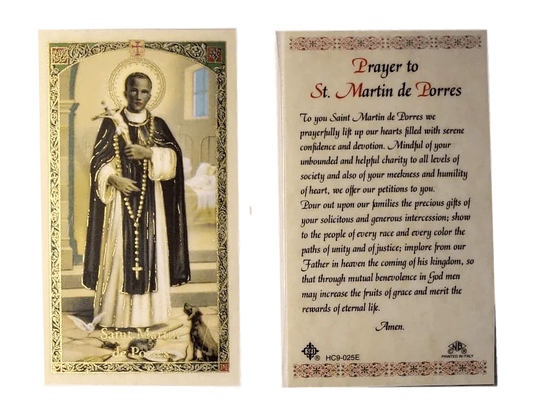 Saint Martin
de Porres
Prayer to
St. Martin de Porres
To you Saint Martin de Porres we
prayerfully lift up our hearts filled with serene
confidence and devotion. Mindful of your
unbounded and helpful charity to all levels of
society and also of your meekness and humility
of heart, we offer our petitions to you.
Pour out upon our families the precious gifts of
your solicitous and generous intercession; show
to the people of every race and every color the
paths of unity and of justice; implore from our
Father in heaven the coming of his kingdom, so
that through mutual benevolence in God men
may increase the fruits of grace and merit the
rewards of eternal life.
Amen.
HC9-025E
NB
PRINTED IN ITALY